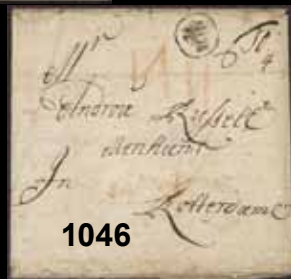 Mr
Andrew Russell
Merchant
In
Rotterdame
1046